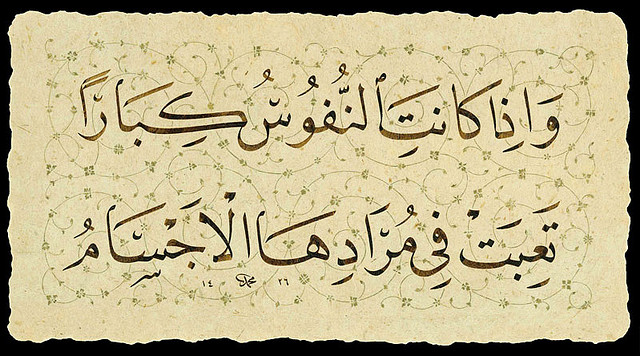 وَاِذَا كَانَتِ النُّفُوسُ كِبَارًا
تَعِبَتْ فِي مُرَادِهَا الْاَجْسَامُ
١٤ محمد ٢٦